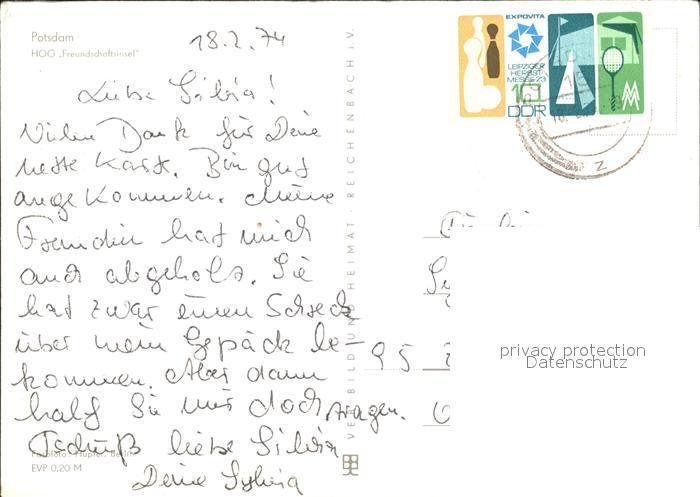 Potsdam
HOG „Freundschaftsinsel"
18.2.74
Liebe Silvia!
Vielen Dank für Deine
nette Karte. Bin gut
angekommen. Meine
Freundin hat mich
auch abgeholt. Sie
hat zwar einen Schreck
über mein Gepäck be-
kommen. Aber dann
half Sie mir doch tragen.
Tschüß liebe Silvia
Deine Sylvia
EVP 0,20 M
VEB BILD UND HEIMAT · REICHENBACH i. V.
EXPOVITA
LEIPZIGER
HERBST-
MESSE 73
10
DDR
MM
95
privacy protection
Datenschutz